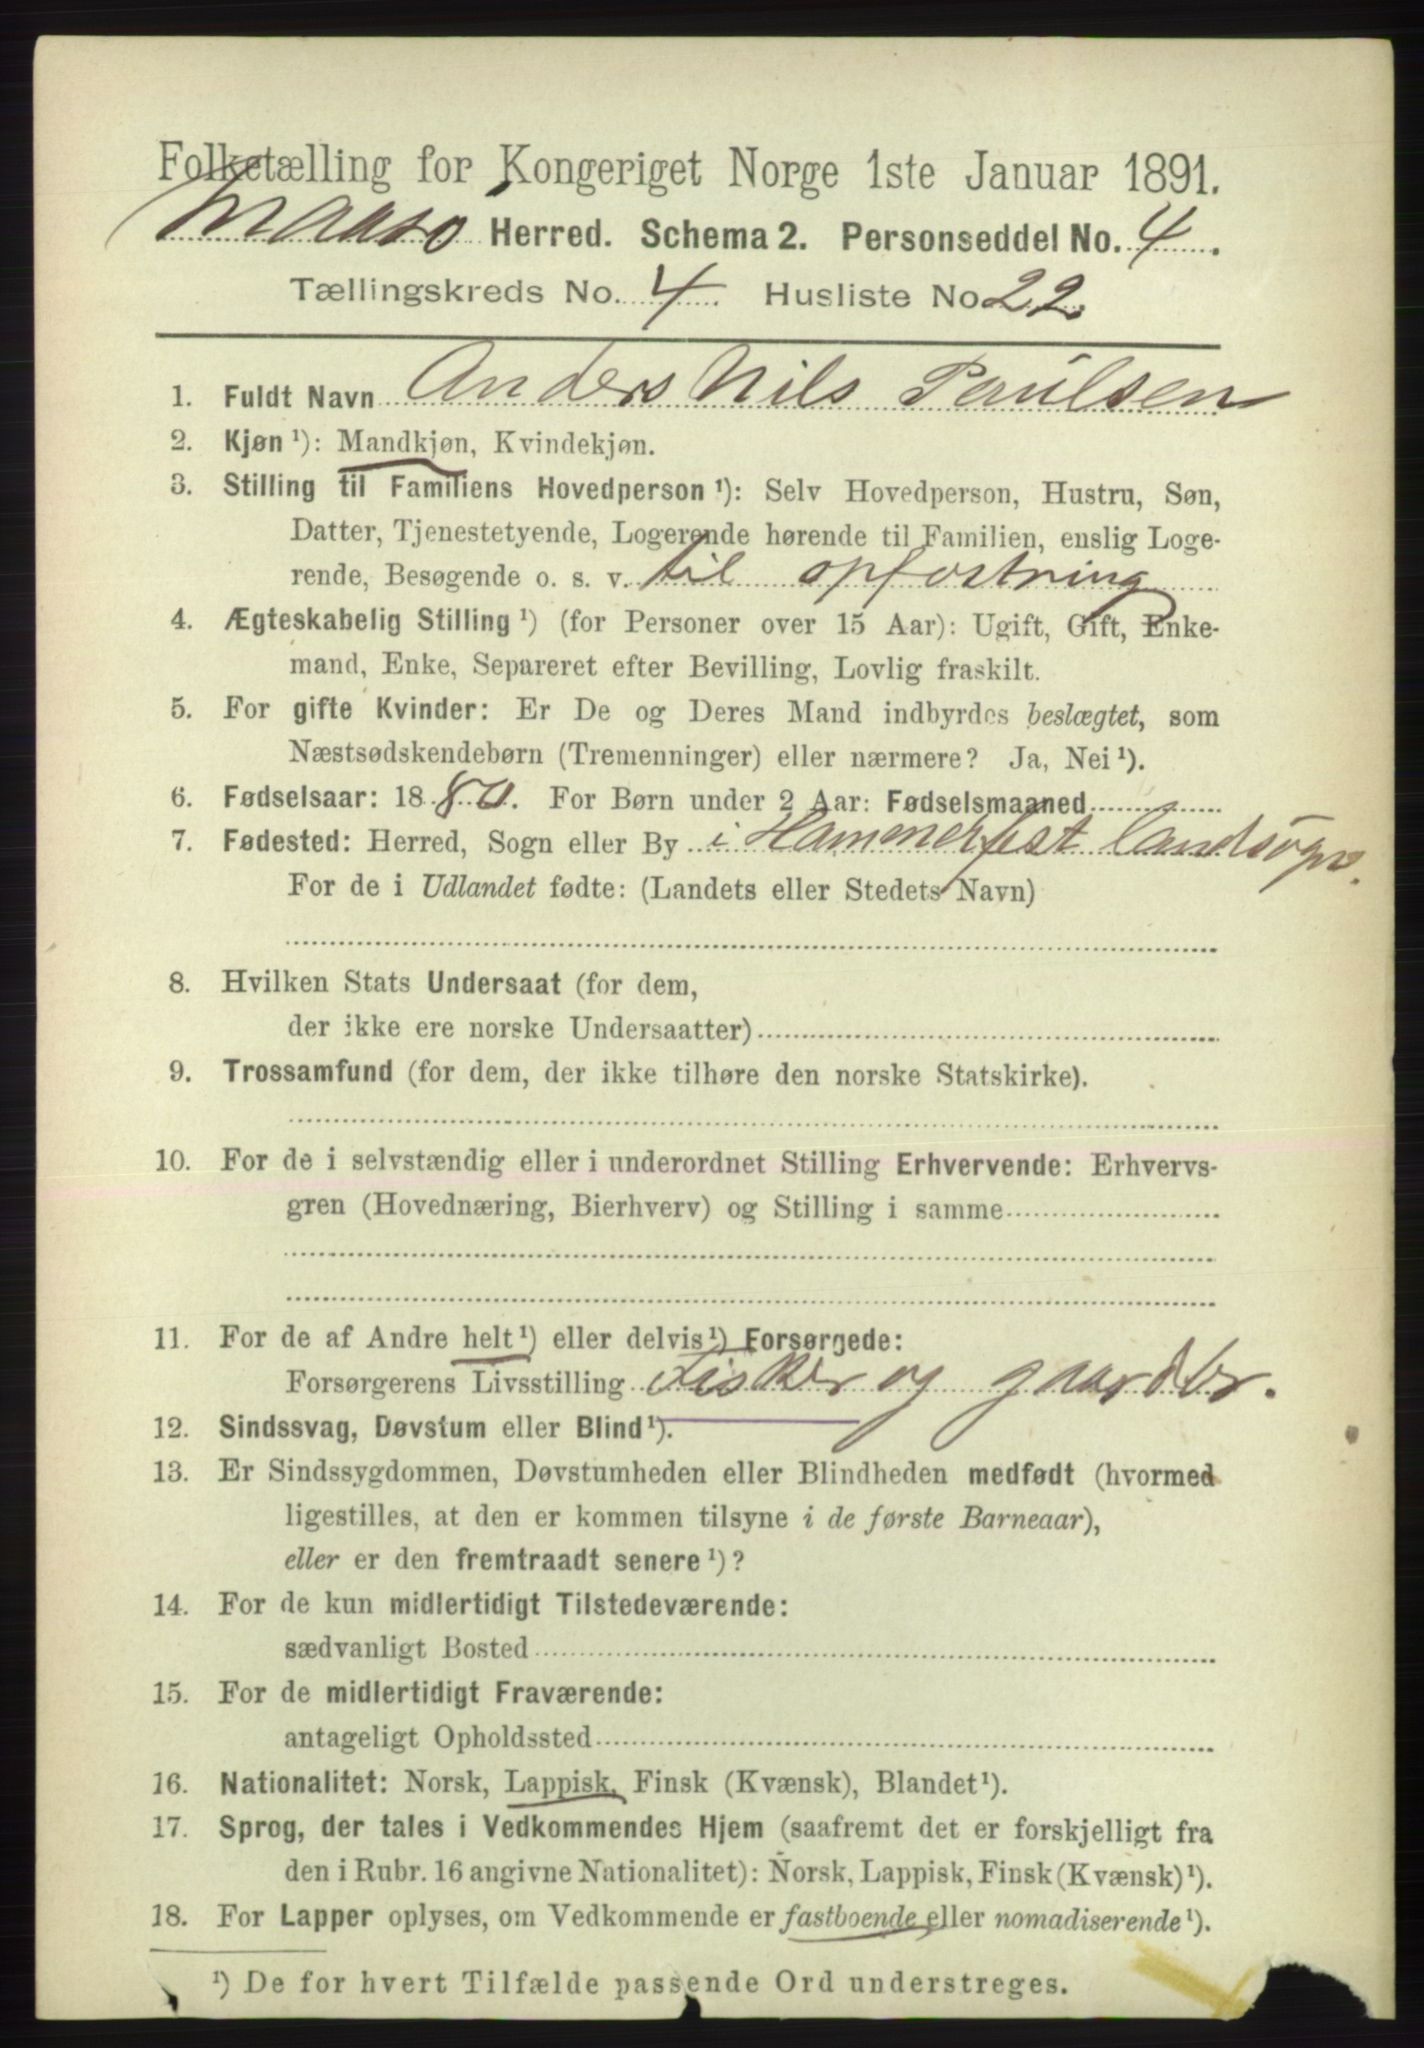 Folketælling for Kongeriget Norge 1ste Januar 1891.
Maasø Herred. Schema 2. Personseddel No. 4.
Tællingskreds No. 4. Husliste No 22.
1. Fuldt Navn Anders Nils Paulsen
2. Kjøn ¹): Mandkjøn, Kvindekjøn.
3. Stilling til Familiens Hovedperson ¹): Selv Hovedperson, Hustru, Søn,
Datter, Tjenestetyende, Logerende hørende til Familien, enslig Loge-
rende, Besøgende o. s. v. til opfostring
4. Ægteskabelig Stilling ¹) (for Personer over 15 Aar): Ugift, Gift, Enke-
mand, Enke, Separeret efter Bevilling, Lovlig fraskilt.
5. For gifte Kvinder: Er De og Deres Mand indbyrdes beslægtet, som
Næstsødskendebørn (Tremenninger) eller nærmere? Ja, Nei ¹).
6. Fødselsaar: 1880. For Børn under 2 Aar: Fødselsmaaned
7. Fødested: Herred, Sogn eller By i Hammerfest landsogn.
For de i Udlandet fødte: (Landets eller Stedets Navn)
8. Hvilken Stats Undersaat (for dem,
der ikke ere norske Undersaatter)
9. Trossamfund (for dem, der ikke tilhøre den norske Statskirke).
10. For de i selvstændig eller i underordnet Stilling Erhvervende: Erhvervs-
gren (Hovednæring, Bierhverv) og Stilling i samme
11. For de af Andre helt ¹) eller delvis ¹) Forsørgede:
Forsørgerens Livsstilling Fisker og gaardbr.
12. Sindssvag, Døvstum eller Blind ¹).
13. Er Sindssygdommen, Døvstumheden eller Blindheden medfødt (hvormed
ligestilles, at den er kommen tilsyne i de første Barneaar),
eller er den fremtraadt senere ¹)?
14. For de kun midlertidigt Tilstedeværende:
sædvanligt Bosted
15. For de midlertidigt Fraværende:
antageligt Opholdssted
16. Nationalitet: Norsk, Lappisk, Finsk (Kvænsk), Blandet ¹).
17. Sprog, der tales i Vedkommendes Hjem (saafremt det er forskjelligt fra
den i Rubr. 16 angivne Nationalitet): Norsk, Lappisk, Finsk (Kvænsk) ¹).
18. For Lapper oplyses, om Vedkommende er fastboende eller nomadiserende ¹).
¹) De for hvert Tilfælde passende Ord understreges.